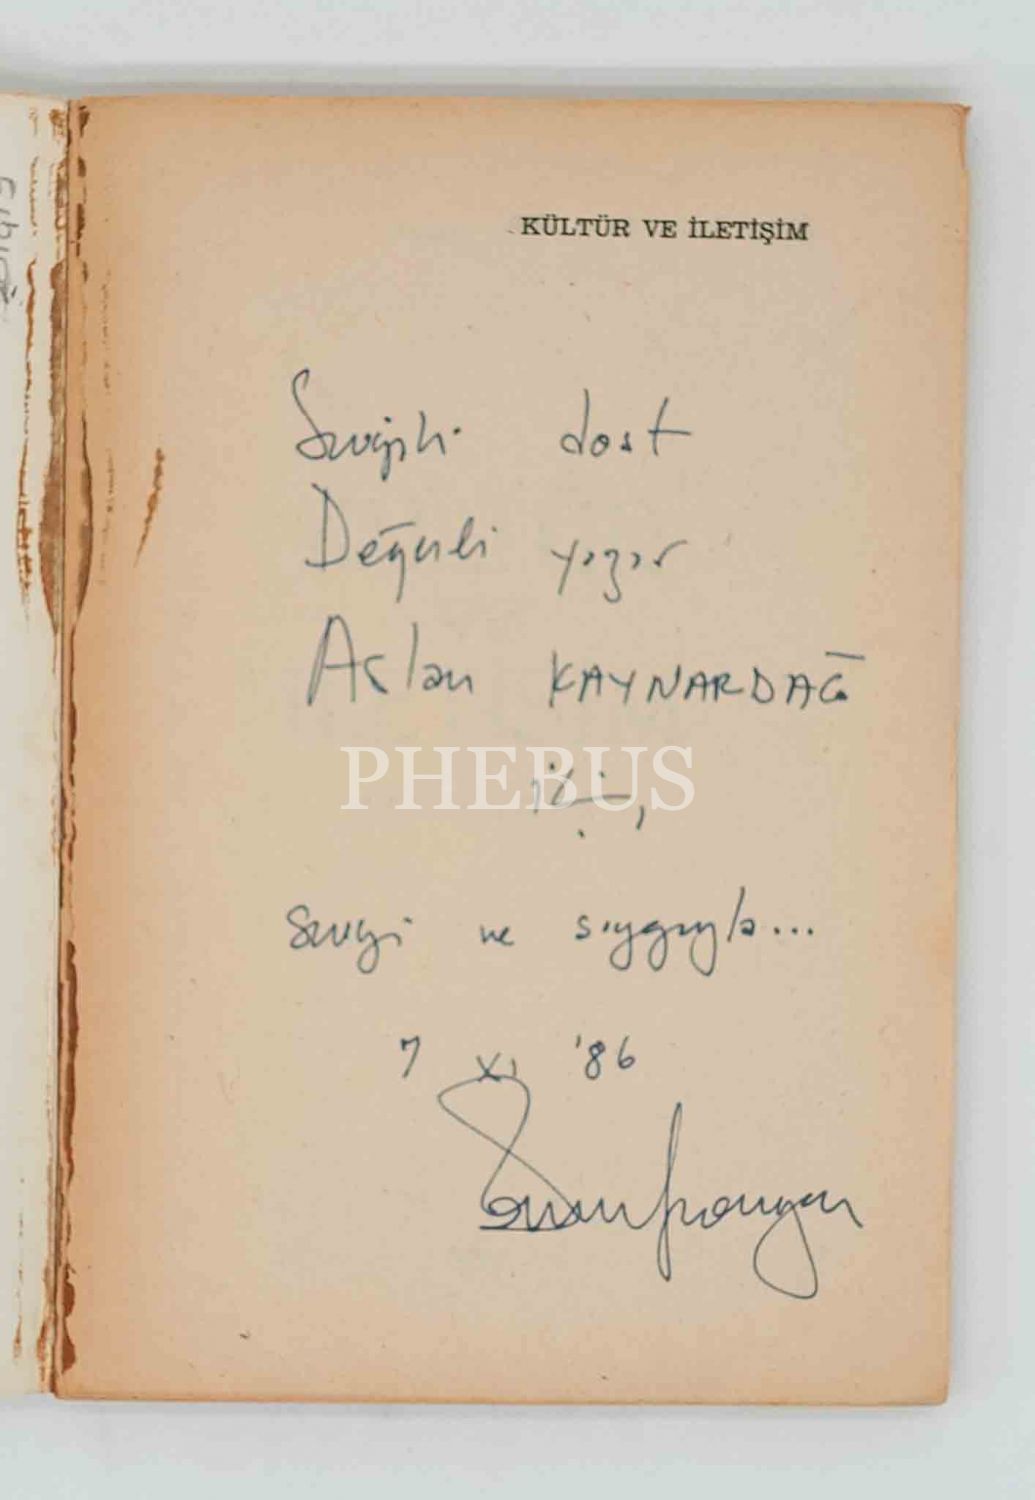 KÜLTÜR VE İLETİŞİM
Sevgili dost
Değerli yazar
Aslan KAYNARDAĞ
PHEBUS
için,
sevgi ve saygıyla...
7 XI '86